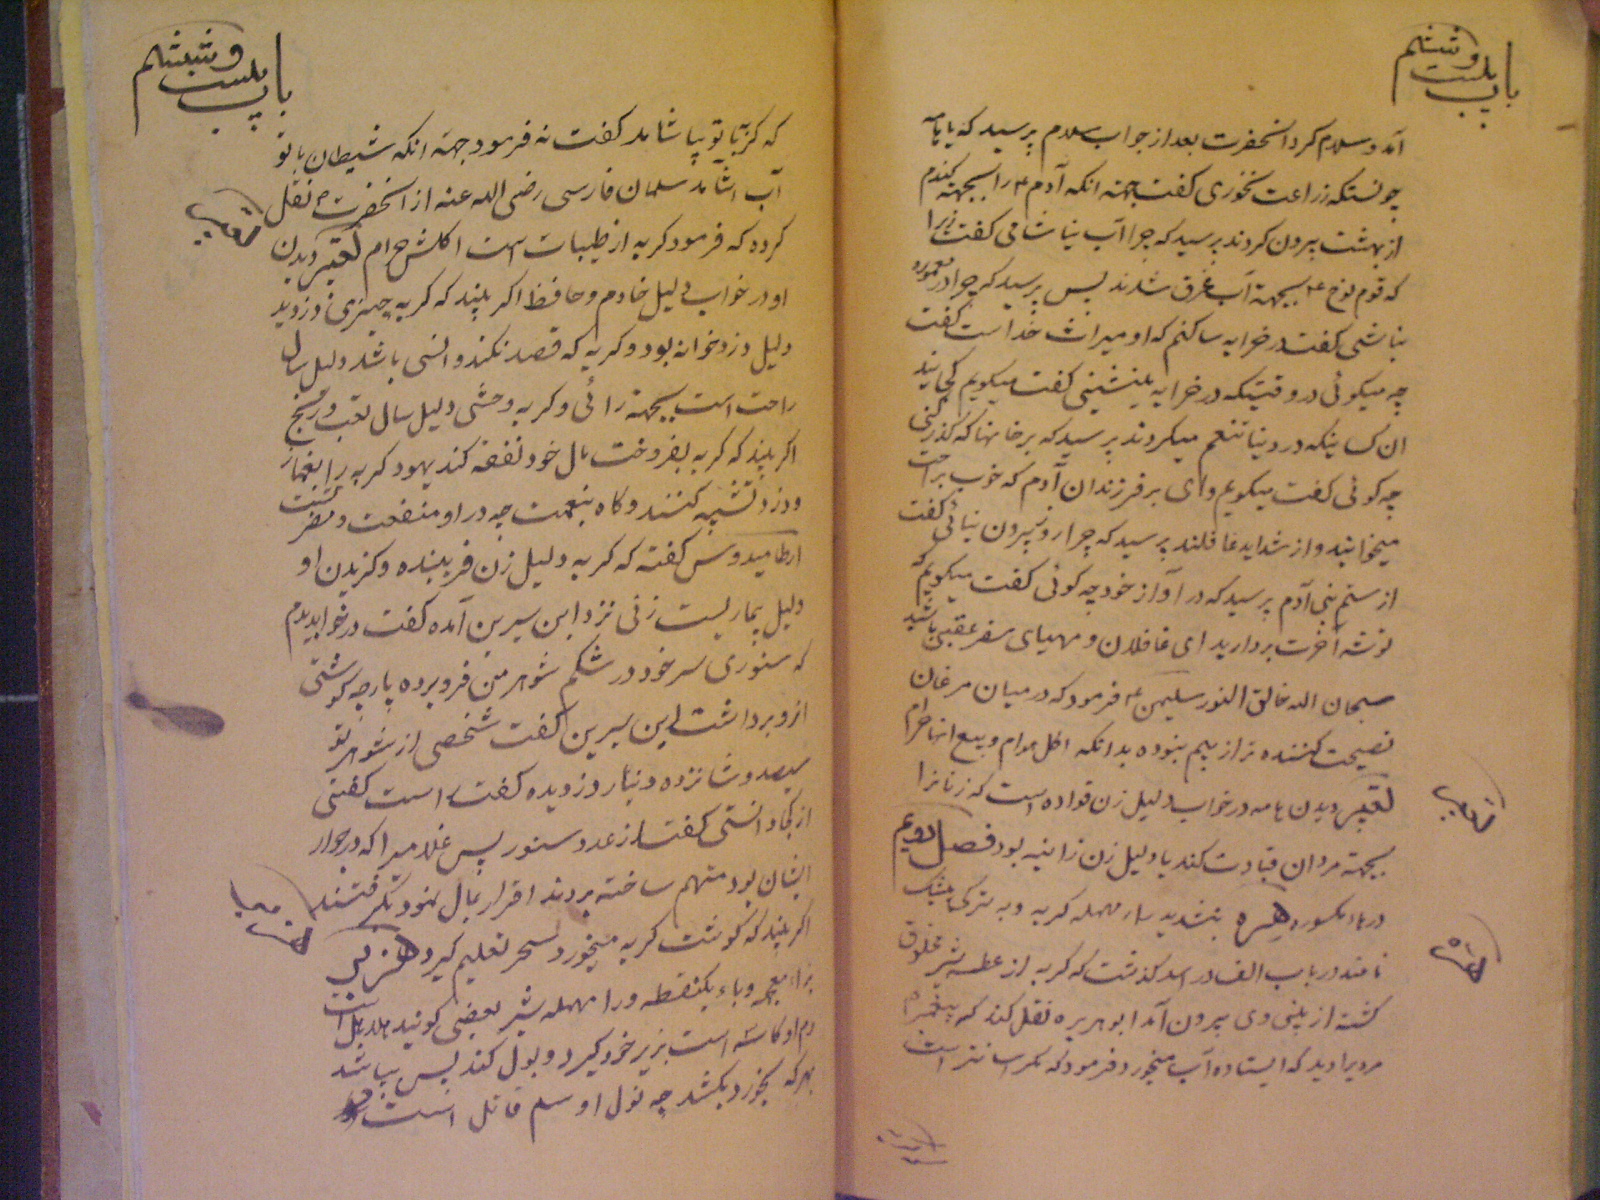 باب بیست و ششم
آمد و سلام کرد آنحضرت بعد از جواب سلام پرسید که یا هامه
چونستکه زراعت نخوری گفت جهة انکه آدم ع را بجهة گندم
از بهشت بیرون کردند پرسید که چرا آب نیاشامی گفت زیرا
که قوم نوح ع بجهة آب غرق شدند پس پرسید که چرا در معموره
نباشی گفت در خرابه ساکنم که او میراث خداست گفت
چه میگوئی در وقتیکه در خرابه بنشینی گفت میگویم کجایند
ان کسانیکه در دنیا تنعم میکردند پرسید که بر خانها که گذر کنی
چه گوئی گفت میگویم وای بر فرزندان آدم که خوب براحت
میخوابند و از شداید غافلند پرسید که چرا روز بیرون نیائی گفت
از ستم بنی آدم پرسید که در آواز خود چه گوئی گفت میگویم که
توشه آخرت بردارید ای غافلان و مهیای سفر عقبی باشید
سبحان الله خالق النور سلیمن ع فرمود که در میان مرغان
نصیحت کننده تر از بوم نبوده بدانکه اکل هوام و بیع انها حرام
تعبیر دیدن هامه در خواب دلیل زن قواده است که زنانرا
بجهة مردان قیادت کند یا دلیل زن زانیه بود فصل دویم
در هاء مکسوره هره بتشدید راء مهمله گربه و به ترکی پشک
نامند در باب الف در اسد گذشت که گربه از عطسه شیر مخلوق
گشته از بینی وی بیرون آمد ابو هریره نقل کند که پیغمبر ص
مردیرا دید که ایستاده آب میخورد فرمود که
تعبیر
هره
باب بیست و ششم
که گربه با تو بیاشامد گفت نه فرمود جهة انکه شیطان با تو
آب اشامد سلمان فارسی رضی الله عنه از آنحضرت ص نقل
کرده که فرمود گربه از طیبات است اکلش حرام تعبیر دیدن
او در خواب دلیل خادم و حافظ اگر بیند که گربه چیزی دزدید
دلیل دزد خوانه بود و گربه که قصد نکند و انسی باشد دلیل سال
راحت است بجهة رائی و گربه وحشی دلیل سال تعب و رنج
اگر بیند که گربه بفروخت مال خود نفقه کند یهود گربه را بغماز
و دزد تشبیه کنند و گاه بنعمت چه در او منفعت و مضرتست
ارطامیدوس گفته که گربه دلیل زن فریبنده و گزیدن او
دلیل بیماریست زنی نزد ابن سیرین آمده گفت در خواب دیدم
که سنوری سر خود در شکم شوهر من فرو برده پارچه گوشتی
ازو برداشت ابن سیرین گفت شخصی از شوهر تو
سیصد و شانزده دینار دزدیده گفت راست گفتی
از کجا دانستی گفت از عدد سنور پس غلامیرا که در جوار
ایشان بود متهم ساخته بردند اقرار بمال نمود بگرفتند
اگر بیند که گوشت گربه میخورد سحر تعلیم گیرد هزبر
بزاء معجمه و باء یکنقطه و را مهمله شیر بعضی گویند
دم او است بزیر خود گیرد و بول کند پس بپاشد
بهر که بخورد بکشد چه بول او سم قاتل است
تعبیر
هزبر